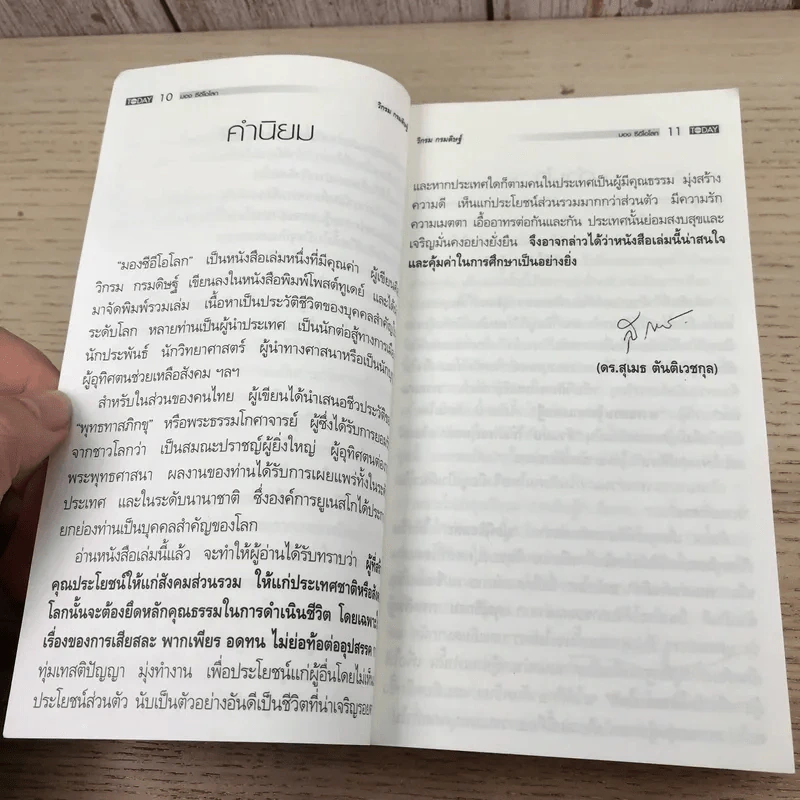 TODAY 10 มอง ซีอีโอโลก
วิกรม กรมดิษฐ์
คำนิยม
"มองซีอีโอโลก" เป็นหนังสือเล่มหนึ่งที่มีคุณค่า ผู้เขียนคือ
วิกรม กรมดิษฐ์ เขียนลงในหนังสือพิมพ์โพสต์ทูเดย์ และได้
มาจัดพิมพ์รวมเล่ม เนื้อหาเป็นประวัติชีวิตของบุคคลสำคัญใน
ระดับโลก หลายท่านเป็นผู้นำประเทศ เป็นนักต่อสู้ทางการเมือง
นักประพันธ์ นักวิทยาศาสตร์ ผู้นำทางศาสนาหรือเป็น
ผู้อุทิศตนช่วยเหลือสังคม ฯลฯ
สำหรับในส่วนของคนไทย ผู้เขียนได้นำเสนอชีวประวัติ
"พุทธทาสภิกขุ" หรือพระธรรมโกศาจารย์ ผู้ซึ่งได้รับการ
จากชาวโลกว่า เป็นสมณะปราชญ์ผู้ยิ่งใหญ่ ผู้อุทิศตน
พระพุทธศาสนา ผลงานของท่านได้รับการเผยแพร่ทั้งใน
ประเทศ และในระดับนานาชาติ ซึ่งองค์การยูเนสโกได้
ยกย่องท่านเป็นบุคคลสำคัญของโลก
อ่านหนังสือเล่มนี้แล้ว จะทำให้ผู้อ่านได้รับทราบว่า
คุณประโยชน์ให้แก่สังคมส่วนรวม ให้แก่ประเทศชาติหรือ
โลกนั้นจะต้องยึดหลักคุณธรรมในการดำเนินชีวิต
เรื่องของการเสียสละ พากเพียร อดทน ไม่ย่อท้อต่ออุปสรรค
ทุ่มเทสติปัญญา มุ่งทำงาน เพื่อประโยชน์แก่ผู้อื่นโดย
ประโยชน์ส่วนตัว นับเป็นตัวอย่างอันดีเป็นชีวิตที่น่าเจริญ
วิกรม กรมดิษฐ์
มอง ซีอีโอโลก 11 TODAY
และหากประเทศใดก็ตามคนในประเทศเป็นผู้มีคุณธรรม มุ่งสร้าง
ความดี เห็นแก่ประโยชน์ส่วนรวมมากกว่าส่วนตัว มีความรัก
ความเมตตา เอื้ออาทรต่อกันและกัน ประเทศนั้นย่อมสงบสุขและ
เจริญมั่นคงอย่างยั่งยืน จึงอาจกล่าวได้ว่าหนังสือเล่มนี้น่าสนใจ
และคุ้มค่าในการศึกษาเป็นอย่างยิ่ง
(ดร.สุเมธ ตันติเวชกุล)